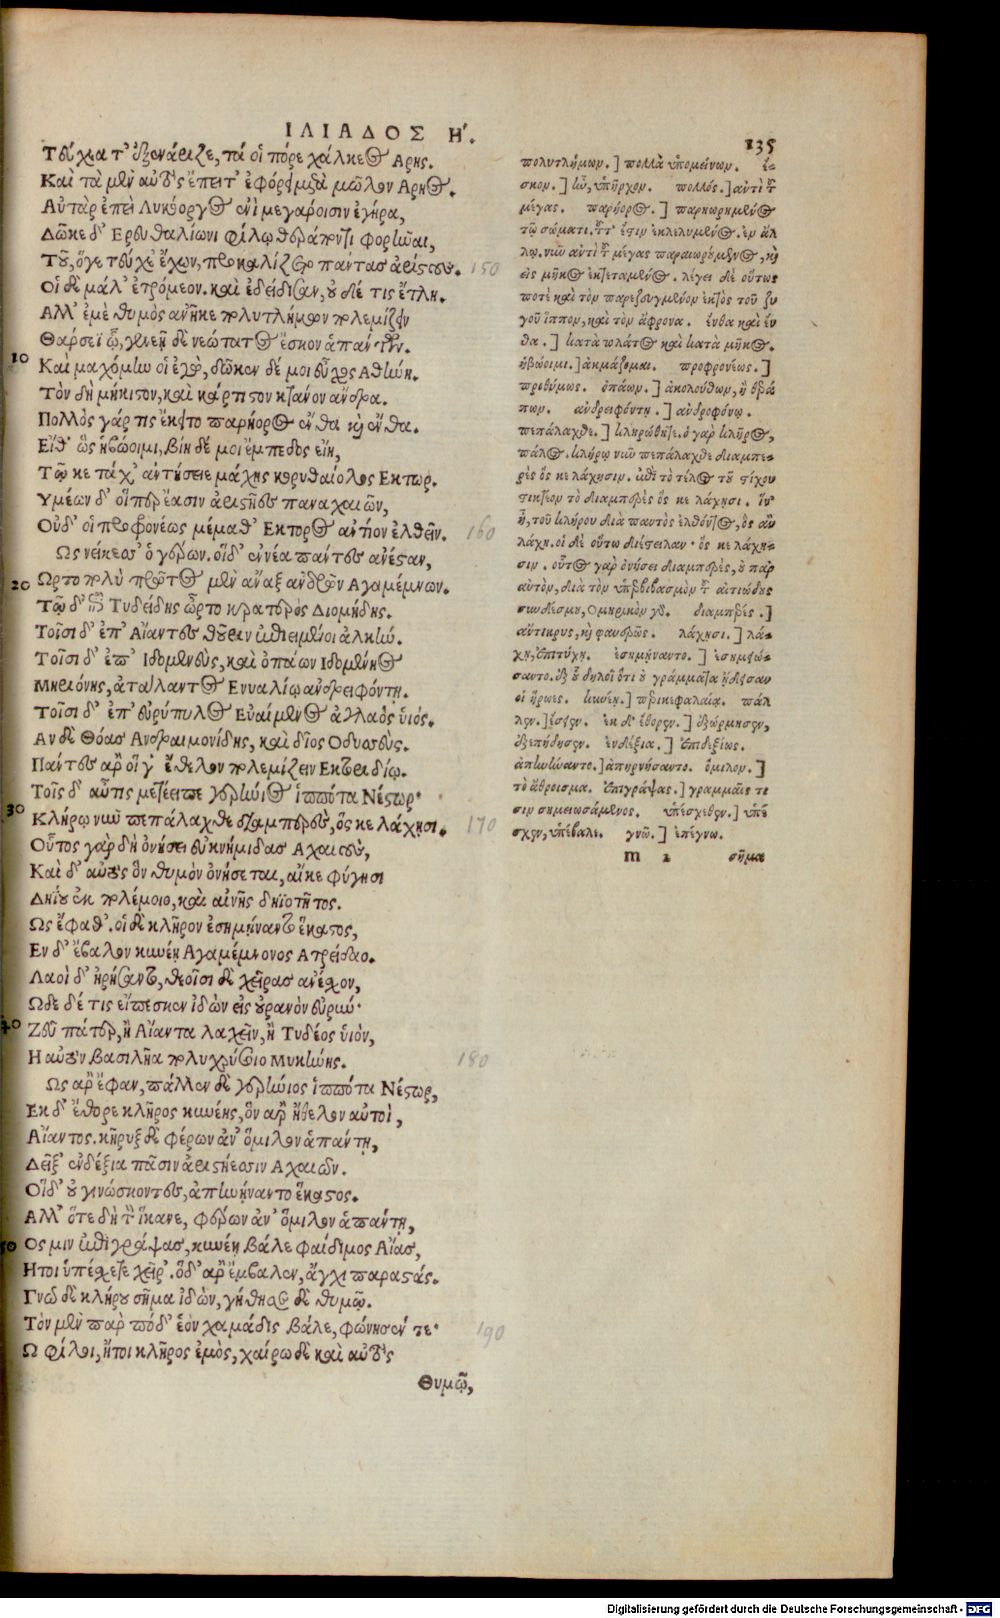 ΙΛΙΑΔΟΣ Η΄.
135
Τεύχεα τ' ἐξενάριζε, τά οἱ πόρε χάλκεος Αρης.
Καὶ τὰ μὲν αὖθις ἔπειτ' ἐφόρει μετὰ μῶλον Αρηος.
Αὐτὰρ ἐπεὶ Λυκόοργος ἐνὶ μεγάροισιν ἐγήρα,
Δῶκε δ' Ερευθαλίωνι φίλῳ θεράποντι φορῆναι,
Τοῦ, ὅγε τεύχε' ἔχων, προκαλίζετο παντας ἀρίστους. 150
Οἱ δὲ μάλ' ἐτρόμεον. καὶ ἐδείδισαν, οὐδέ τις ἔτλη.
Αλλ' ἐμὲ θυμὸς ανῆκε πολυτλήμων πολεμίζειν
Θάρσεϊ ᾧ, γενεῇ δὲ νεώτατος ἔσκον ἁπάντων.
10 Καὶ μαχόμην οἱ ἐγώ, δῶκεν δέ μοι εὖχος Αθήνη.
Τὸν δὴ μήκιστον, καὶ κάρτιστον κτάνον ἄνδρα.
Πολλὸς γάρ τις ἔκειτο παρήορος ἔνθα καὶ ἔνθα.
Εἴθ' ὣς ἡβώοιμι, βίη δέ μοι ἔμπεδος εἴη,
Τῷ κε τάχ' αντήσειε μάχης κορυθαίολος Εκτωρ.
Υμέων δ' οἵπερ ἔασιν ἀριστῆες παναχαιῶν,
Οὐδ' οἱ προφρονέως μέμαθ' Εκτορος αντίον ἐλθεῖν. 160
Ως νείκεσσ' ὁ γέρων. οἱ δ' ἐννέα πάντες ανέσταν,
20 Ωρτο πολὺ πρῶτος μὲν ἄναξ ανδρῶν Αγαμέμνων.
Τῷ δ' ἐπὶ Τυδείδης ὦρτο κρατερὸς Διομήδης.
Τοῖσι δ' ἐπ' Αἴαντες θοῦριν ἐπιειμένοι ἀλκήν.
Τοῖσι δ' ἐπ' Ιδομενεὺς, καὶ ὀπάων Ιδομενῆος
Μηριόνης, ἀτάλαντος Ενυαλίῳ ανδρειφόντῃ.
Τοῖσι δ' ἐπ' εὐρύπυλος Εὐαίμονος ἀγλαὸς ὑιός.
Αν δὲ Θόας Ανδραιμονίδης, καὶ δῖος Οδυσσεύς.
Πάντες αρ' οἵγ' ἔθελον πολεμίζειν Εκτορι δίῳ.
Τοῖς δ' αὖτις μετέειπε γερήνιος ἱππότα Νέστωρ·
30 Κλήρῳ νῦν πεπάλαχθε διαμπερὲς, ὅς κε λάχῃσι. 170
Οὗτος γὰρ δὴ ὀνήσει ἐυκνήμιδας Αχαιούς,
Καὶ δ' αὐτὸς ὃν θυμὸν ὀνήσεται, αἴκε φύγῃσι
Δηΐου ἐκ πολέμοιο, καὶ αἰνῆς δηϊοτῆτος.
Ως ἔφαθ'. οἱ δὲ κλῆρον ἐσημήναντο ἕκαστος,
Εν δ' ἔβαλον κυνέῃ Αγαμέμνονος Ατρείδαο.
Λαοὶ δ' ἠρήσαντο, θεοῖσι δὲ χεῖρας ανέσχον,
Ωδε δέ τις εἴπεσκεν ἰδὼν εἰς οὐρανὸν εὐρύν·
40 Ζεῦ πάτερ, ἢ Αἴαντα λαχεῖν, ἢ Τυδέος ὑιὸν,
Η αὐτὸν βασιλῆα πολυχρύσοιο Μυκήνης. 180
Ως αρ' ἔφαν, πάλλεν δὲ γερήνιος ἱππότα Νέστωρ,
Εκ δ' ἔθορε κλῆρος κυνέης, ὃν αρ' ἤθελον αὐτοὶ,
Αἴαντος. κῆρυξ δὲ φέρων αν' ὅμιλον ἁπάντῃ,
Δεῖξ' ἐνδέξια πᾶσιν ἀριστήεσσιν Αχαιῶν.
Οἱ δ' οὐ γινώσκοντες, ἀπηνήναντο ἕκαστος.
Αλλ' ὅτε δὴ τὸν ἵκανε, φέρων αν' ὅμιλον ἁπάντῃ,
50 Ος μιν ἐπιγράψας, κυνέῃ βάλε φαίδιμος Αἴας,
Ητοι ὑπέσχεθε χεῖρ'. ὁ δ' αρ' ἔμβαλεν, ἄγχι παραστάς.
Γνῶ δὲ κλήρου σῆμα ἰδὼν, γήθησε δὲ θυμῷ.
Τὸν μὲν παρ πόδ' ἑὸν χαμάδις βάλε, φώνησέν τε· 190
Ω φίλοι, ἤτοι κλῆρος ἐμὸς, χαίρω δὲ καὶ αὐτὸς
Θυμῷ,
πολυτλήμων.] πολλὰ ὑπομείνων. ἔ-
σκον.] ἦν, ὑπῆρχον. πολλός.] αντὶ τοῦ
μέγας. παρήορος.] παρηωρημένος
τῷ σώματι. τουτέστιν ἐκλελυμένος. ἐν ἄλ
λῳ. νῦν αντὶ τοῦ μέγας παραιωρούμενος, καὶ
εἰς μῆκος ἐκτεταμένος. λέγει δὲ οὕτως
ποτὲ καὶ τὸν παρεζευγμένον ἐκτὸς τοῦ ζυ
γοῦ ἵππον, καὶ τὸν ἄφρονα. ἔνθα καὶ ἔν
θα.] κατὰ πλάτος καὶ κατὰ μῆκος.
ἡβώοιμι.] ἀκμάζοιμι. προφρονέως.]
προθύμως. ὀπάων.] ἀκολούθων, ἢ θερά
πων. ανδρειφόντῃ.] ανδροφόνῳ.
πεπάλαχθε.] κληρώθητε. ὁ γὰρ κλῆρος,
πάλος. κλήρῳ νῦν πεπάλαχθε διαμπε-
ρὲς ὅς κε λάχησιν. ἐπὶ τὸ τέλος τοῦ στίχου
στικτέον τὸ διαμπερὲς ὅς κε λάχησι. ἵν'
ᾖ, τοῦ κλήρου διὰ παντὸς ἐλθόντος, ὃς ἂν
λάχῃ. οἱ δὲ οὕτω διέστειλαν· ὅς κε λάχη-
σιν. οὗτος γὰρ ὀνήσει διαμπερὲς, οὐ παρ
αὐτὸν, διὰ τὸν ὑπερβιβασμὸν τοῦ αἰτιώδους
συνδέσμου, Ομηρικὸν γάρ. διαμπερές.]
ἄντικρυς, καὶ φανερῶς. λάχησι.] λά-
χῃ, ἐπιτύχῃ. ἐσημήναντο.] ἐσημειώ-
σαντο. ἐξ οὗ δηλοῖ ὅτι οὐ γράμματα ᾔδεσαν
οἱ ἥρωες. κυνέῃ.] περικεφαλαίᾳ. πάλ
λεν.] ἔσειεν. ἐκ δ' ἔθορεν.] ἐξώρμησεν,
ἐξεπήδησεν. ἐνδέξια.] ἐπιδεξίως.
ἀπηνήναντο.] ἀπηρνήσαντο. ὅμιλον.]
τὸ ἄθροισμα. ἐπιγράψας.] γραμμαῖς τι
σιν σημειωσάμενος. ὑπέσχεθεν.] ὑπέ
σχεν, ὑπέβαλε. γνῶ.] ἐπέγνω.
m 2 σῆμα
Digitalisierung gefördert durch die Deutsche Forschungsgemeinschaft - DFG